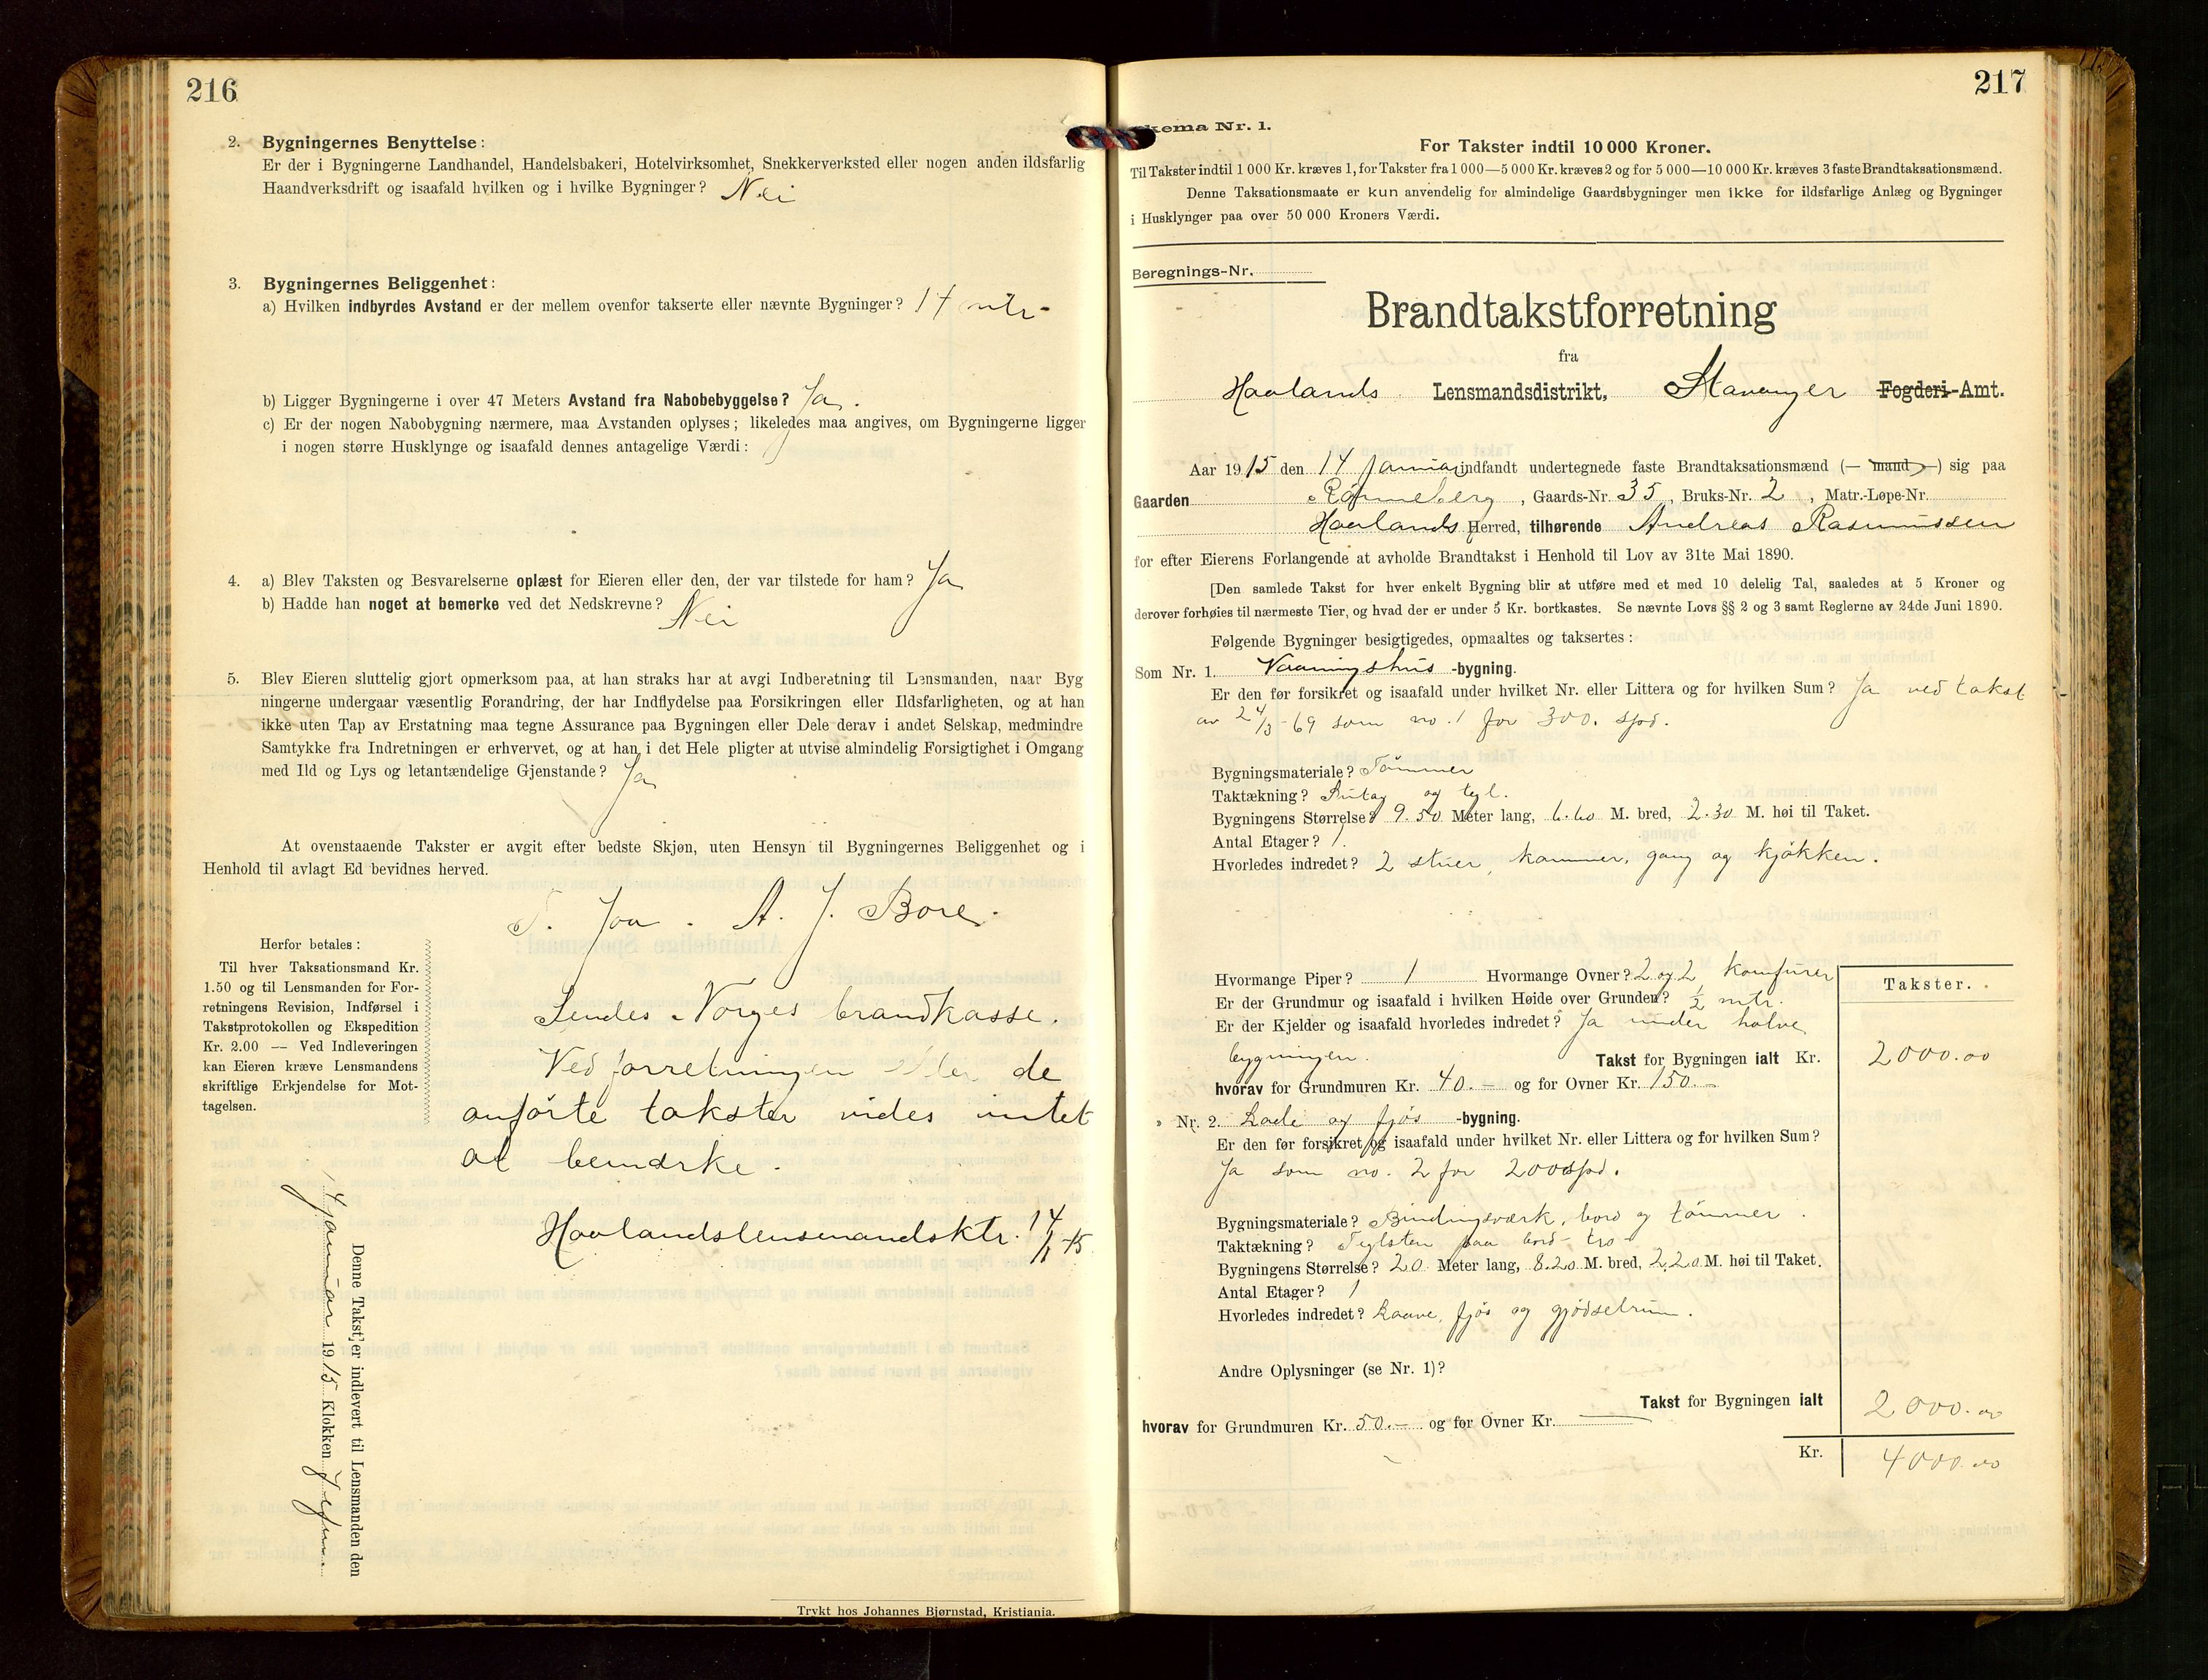 216
2. Bygningernes Benyttelse:
Er der i Bygningerne Landhandel, Handelsbakeri, Hotelvirksomhet, Snekkerverksted eller nogen anden ildsfarlig
Haandverksdrift og isaafald hvilken og i hvilke Bygninger? Nei
3. Bygningernes Beliggenhet:
a) Hvilken indbyrdes Avstand er der mellem ovenfor takserte eller nævnte Bygninger? 14 mtr-
b) Ligger Bygningerne i over 47 Meters Avstand fra Nabobebyggelse? Ja.
c) Er der nogen Nabobygning nærmere, maa Avstanden oplyses; likeledes maa angives, om Bygningerne ligger
i nogen større Husklynge og isaafald dennes antagelige Værdi:
4. a) Blev Taksten og Besvarelserne oplæst for Eieren eller den, der var tilstede for ham? Ja
b) Hadde han noget at bemerke ved det Nedskrevne? Nei
5. Blev Eieren sluttelig gjort opmerksom paa, at han straks har at avgi Indberetning til Lensmanden, naar Byg
ningerne undergaar væsentlig Forandring, der har Indflydelse paa Forsikringen eller Ildsfarligheten, og at han
ikke uten Tap av Erstatning maa tegne Assurance paa Bygningen eller Dele derav i andet Selskap, medmindre
Samtykke fra Indretningen er erhvervet, og at han i det Hele pligter at utvise almindelig Forsigtighet i Omgang
med Ild og Lys og letantændelige Gjenstande? Ja
At ovenstaaende Takster er avgit efter bedste Skjøn, uten Hensyn til Bygningernes Beliggenhet og i
Henhold til avlagt Ed bevidnes herved.
T. Joa. A. J. Bore.
Herfor betales:
Til hver Taksationsmand Kr.
1.50 og til Lensmanden for For-
retningens Revision, Indførsel i
Takstprotokollen og Ekspedition
Kr. 2.00 — Ved Indleveringen
kan Eieren kræve Lensmandens
skriftlige Erkjendelse for Mot-
tagelsen.
Sendes Norges brandkasse.
Ved forretningen eller de
anførte takster vides intet
at bemærke.
Haalandslensmandsktr. 14/1-15
Denne Takst er indlevert til Lensmanden den
14 januar 1915 Klokken
Trykt hos Johannes Bjørnstad, Kristiania.
217
kema Nr. 1.
For Takster indtil 10 000 Kroner.
Til Takster indtil 1 000 Kr. kræves 1, for Takster fra 1 000—5 000 Kr. kræves 2 og for 5 000—10 000 Kr. kræves 3 faste Brandtaksationsmænd.
Denne Taksationsmaate er kun anvendelig for almindelige Gaardsbygninger men ikke for ildsfarlige Anlæg og Bygninger
i Husklynger paa over 50 000 Kroners Værdi.
Beregnings-Nr.
Brandtakstforretning
fra
Haalands Lensmandsdistrikt, Stavanger Fogderi-Amt.
Aar 1915 den 14 Januar indfandt undertegnede faste Brandtaksationsmænd (— mand —) sig paa
Gaarden Rønneberg, Gaards-Nr. 35, Bruks-Nr. 2, Matr.-Løpe-Nr.
Haalands Herred, tilhørende Andreas Rasmussen
for efter Eierens Forlangende at avholde Brandtakst i Henhold til Lov av 31te Mai 1890.
[Den samlede Takst for hver enkelt Bygning blir at utføre med et med 10 delelig Tal, saaledes at 5 Kroner og
derover forhøies til nærmeste Tier, og hvad der er under 5 Kr. bortkastes. Se nævnte Lovs §§ 2 og 3 samt Reglerne av 24de Juni 1890.
Følgende Bygninger besigtigedes, opmaaltes og taksertes:
Som Nr. 1. Vaaningshus -bygning.
Er den før forsikret og isaafald under hvilket Nr. eller Littera og for hvilken Sum? Ja ved takst
av 24/3-69 som no. 1 for 300. spd.
Bygningsmateriale? Tømmer
Taktækning? og tegl.
Bygningens Størrelse? 9.50 Meter lang, 6.60 M. bred, 2.30 M. høi til Taket.
Antal Etager? 1.
Hvorledes indredet? 2 stuer, kammer, gang og kjøkken.
Hvormange Piper? 1 Hvormange Ovner? 2 og 2 komfurer
Er der Grundmur og isaafald i hvilken Høide over Grunden? 1/2 mtr.
Er der Kjelder og isaafald hvorledes indredet? Ja under halve
bygningen.
Takster.
Takst for Bygningen ialt Kr. 2000.00
hvorav for Grundmuren Kr. 40.- og for Ovner Kr. 150.-
» Nr. 2. Lade og fjøs -bygning.
Er den før forsikret og isaafald under hvilket Nr. eller Littera og for hvilken Sum?
Ja som no. 2 for 200 spd.
Bygningsmateriale? Bindingsværk, bord og tømmer.
Taktækning? Teglsten paa bord-tro-
Bygningens Størrelse? 20 Meter lang, 8.20 M. bred, 2.20 M. høi til Taket.
Antal Etager? 1
Hvorledes indredet? Laave, fjøs og gjødselrum.
Andre Oplysninger (se Nr. 1)?
Takst for Bygningen ialt 2000.00
hvorav for Grundmuren Kr. 50.- og for Ovner Kr.
Kr. 4000.00